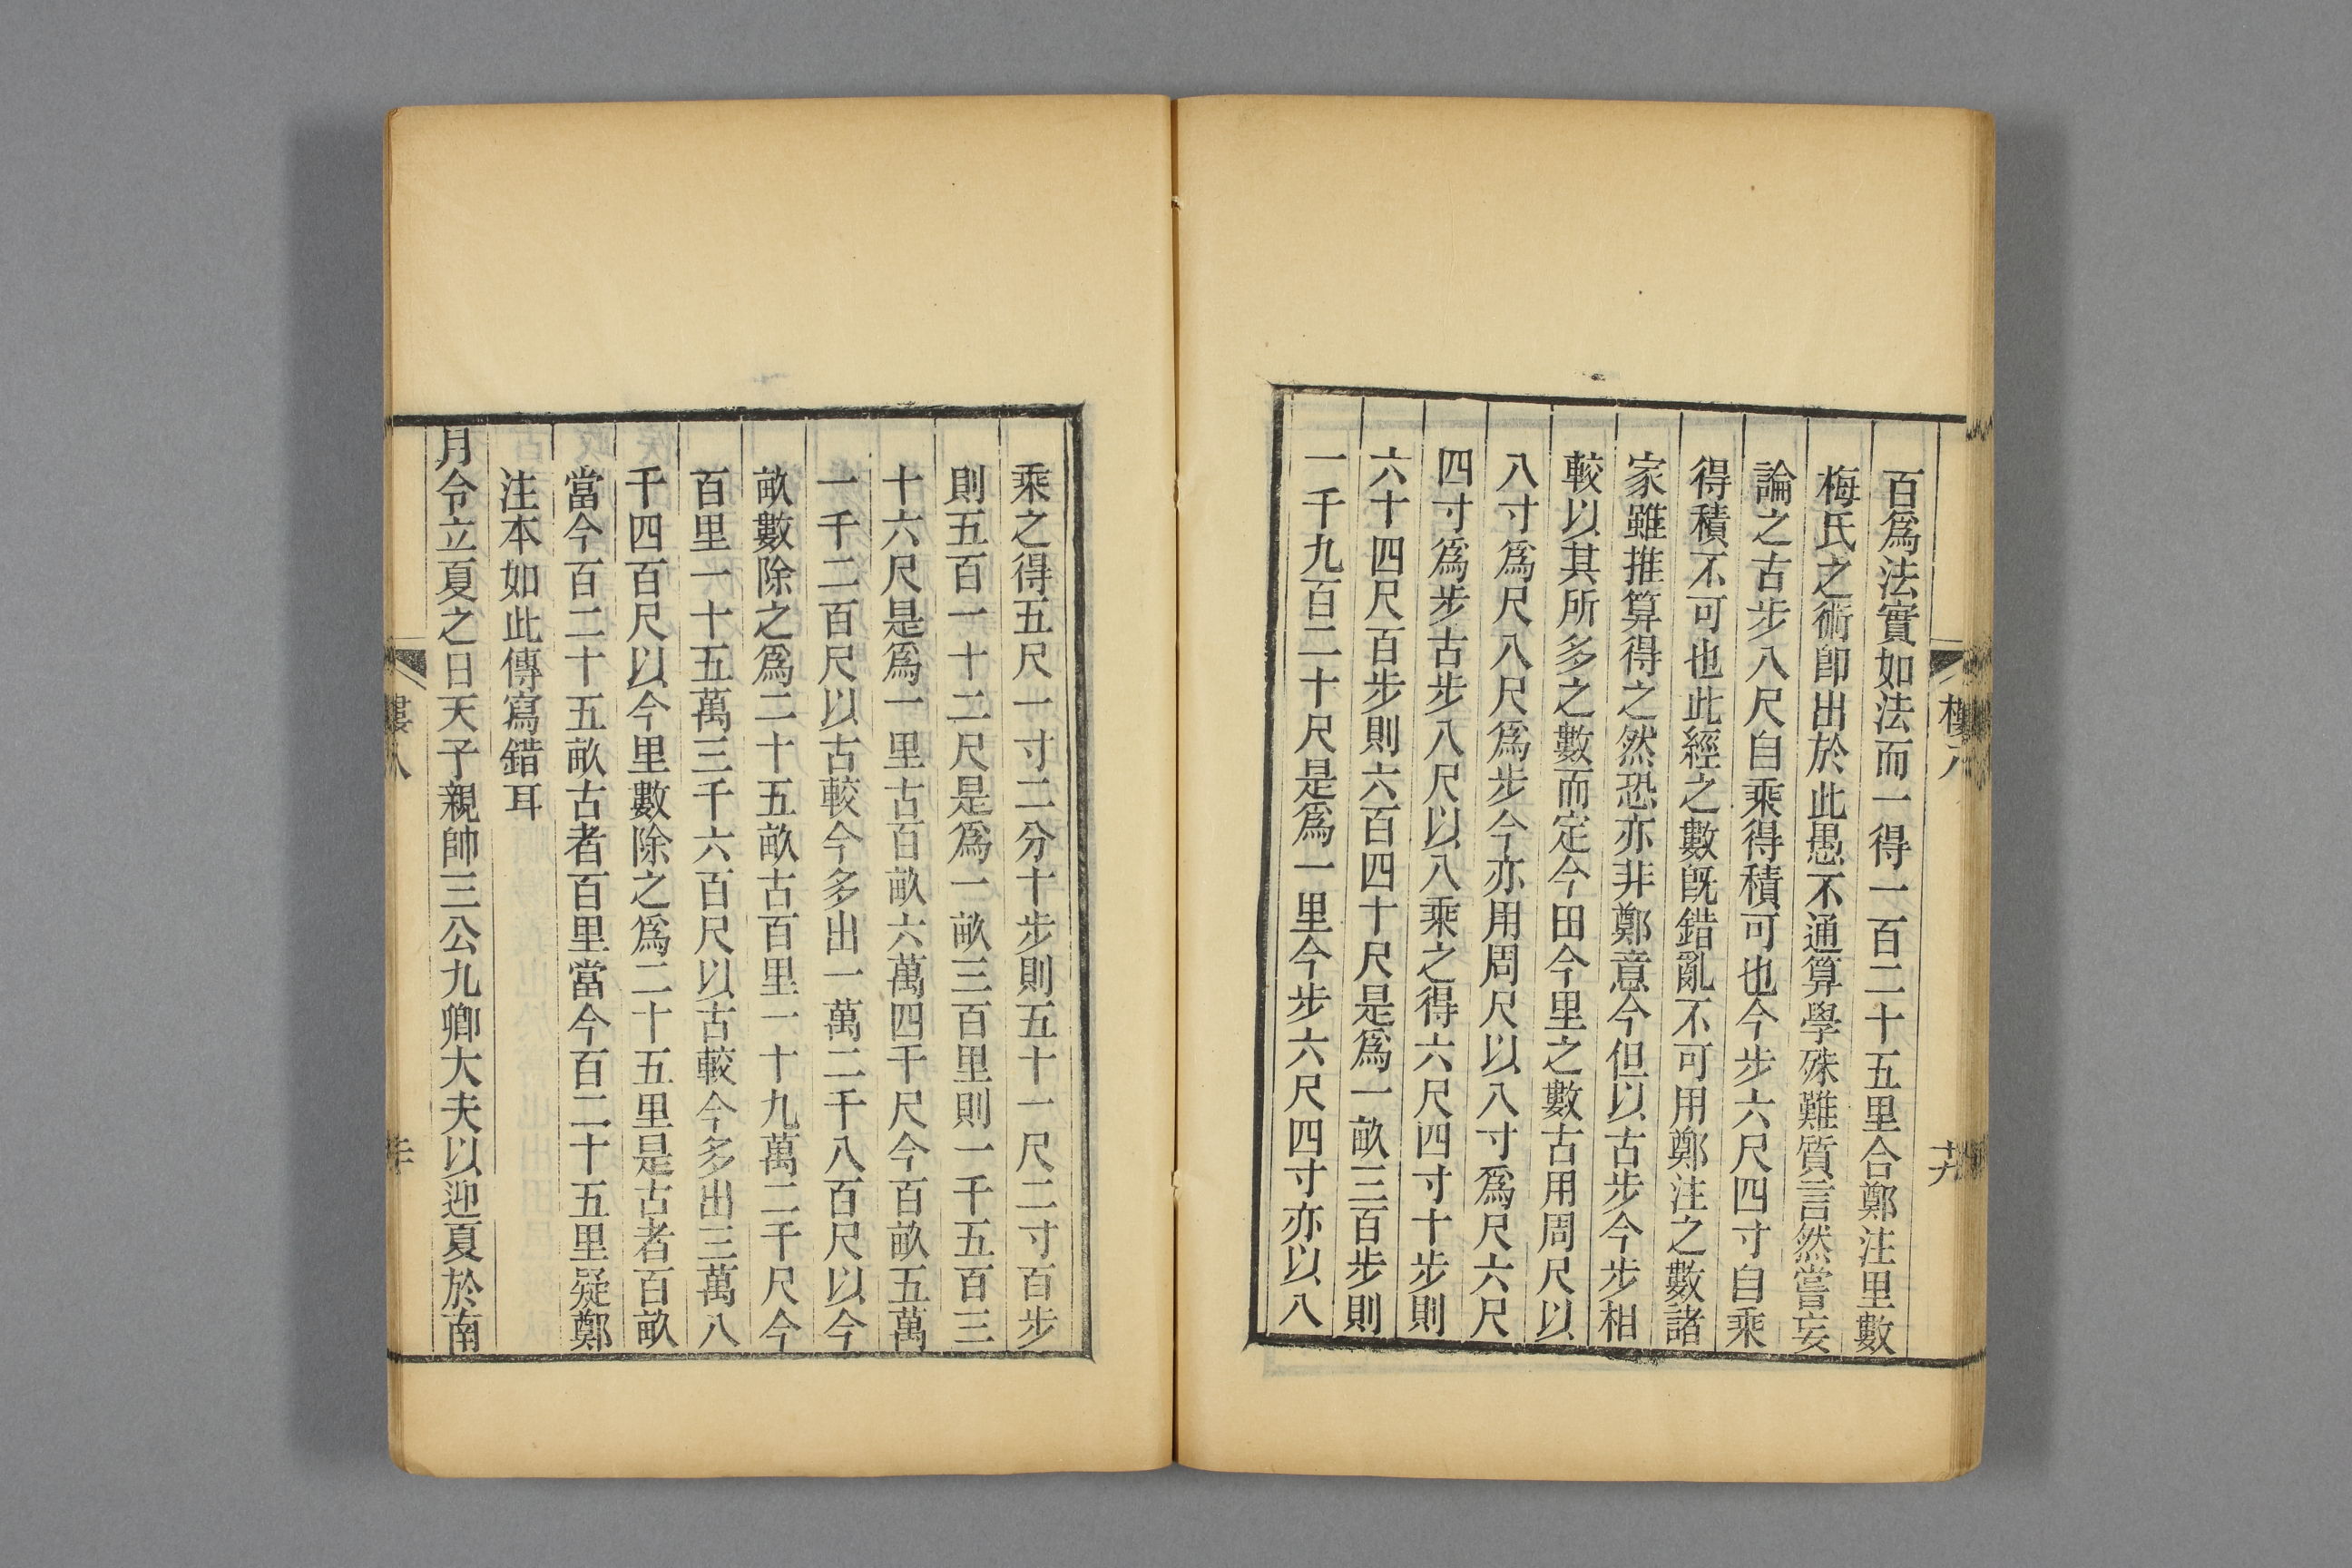 百爲法實如法而一得一百二十五里合鄭注里數
梅氏之術卽出於此愚不通算學殊難質言然嘗妄
論之古步八尺自乘得積可也今步六尺四寸自乘
得積不可也此經之數旣錯亂不可用鄭注之數諸
家雖推算得之然恐亦非鄭意今但以古步今步相
較以其所多之數而定今田今里之數古用周尺以
八寸爲尺八尺爲步今亦用周尺以八寸爲尺六尺
四寸爲步古步八尺以八乘之得六尺四寸十步則
六十四尺百步則六百四十尺是爲一畝三百步則
一千九百二十尺是爲一里今步六尺四寸亦以八
乘之得五尺一寸二分十步則五十一尺二寸百步
則五百一十二尺是爲一畝三百里則一千五百三
十六尺是爲一里古百畝六萬四千尺今百畝五萬
一千二百尺以古較今多出一萬二千八百尺以今
畝數除之爲二十五畝古百里一十九萬二千尺今
百里一十五萬三千六百尺以古較今多出三萬八
千四百尺以今里數除之爲二十五里是古者百畝
當今百二十五畝古者百里當今百二十五里疑鄭
注本如此傳寫錯耳
月令立夏之日天子親帥三公九卿大夫以迎夏於南